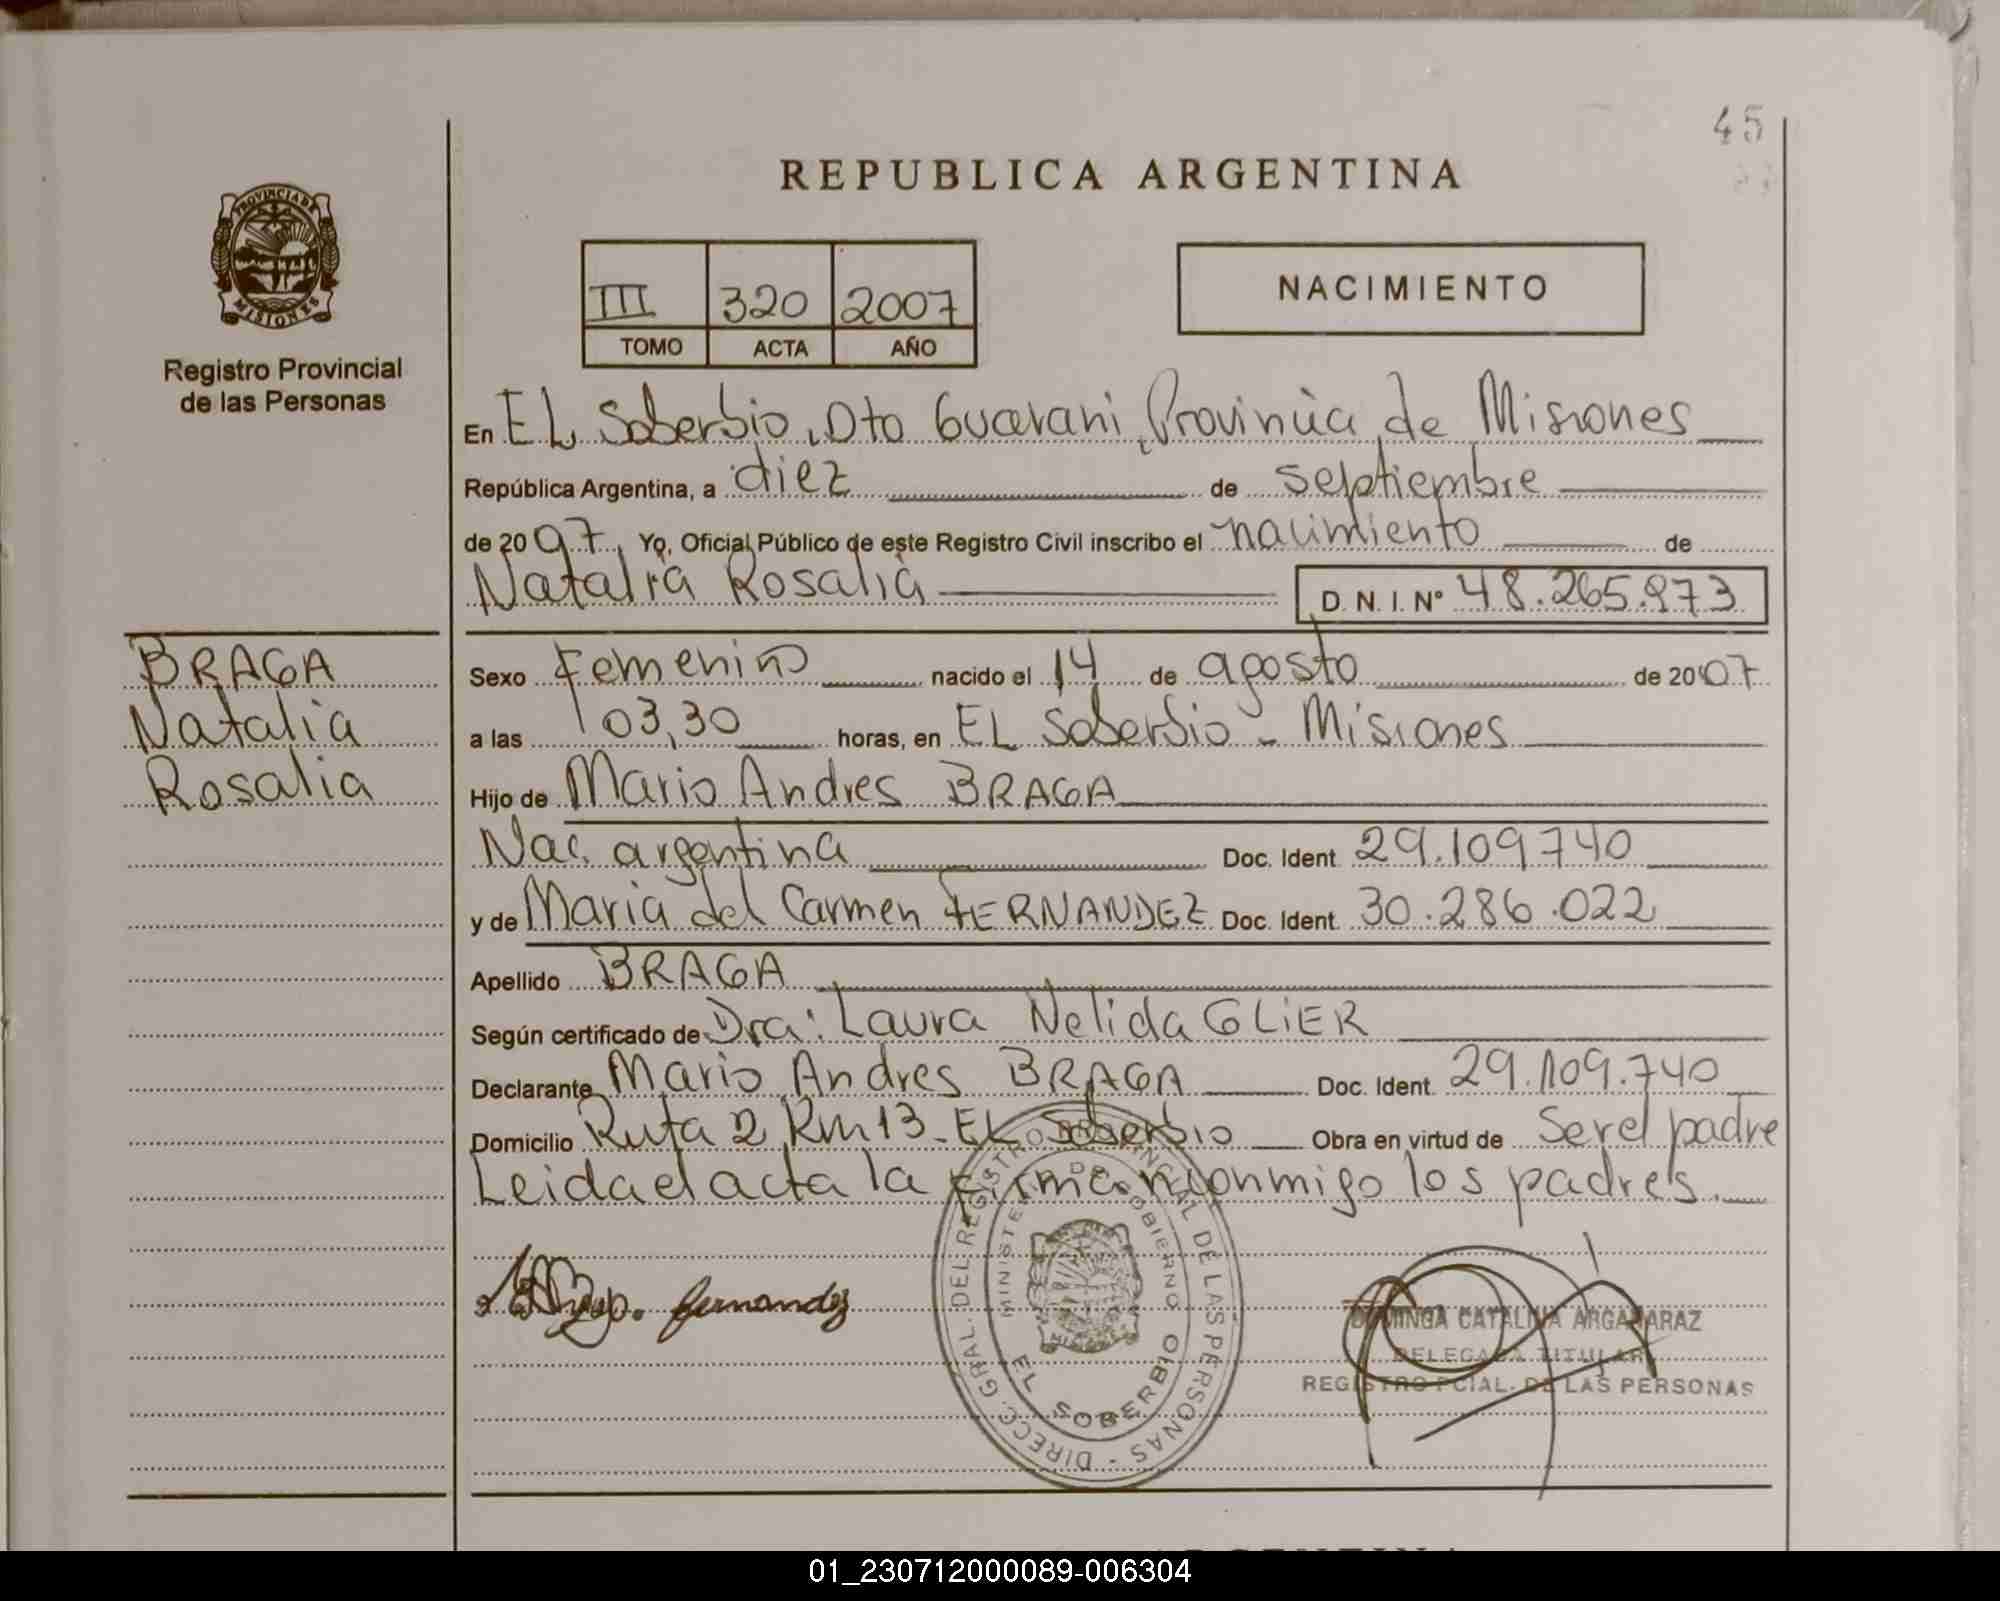 45
REPUBLICA ARGENTINA
PROVINCIA DE
MISIONES
Registro Provincial
de las Personas
III 320 2007
TOMO ACTA AÑO
NACIMIENTO
En EL Soberbio, Dto Guarani, Provincia de Misiones
República Argentina, a diez de septiembre
de 2007, Yo, Oficial Público de este Registro Civil inscribo el nacimiento de
Natalia Rosalia D. N. I. Nº 48.265.973
BRAGA
Natalia
Rosalia
Sexo Femenino nacido el 14 de agosto de 2007
a las 03,30 horas, en EL Soberbio - Misiones
Hijo de Mario Andres BRAGA
Nac. argentina Doc. Ident. 29.109740
y de Maria del Carmen FERNANDEZ Doc. Ident. 30.286.022
Apellido BRAGA
Según certificado de Dra: Laura Nelida GLIER
Declarante Mario Andres BRAGA Doc. Ident. 29.109.740
Domicilio Ruta 2 Km 13 - EL Soberbio Obra en virtud de Ser el padre
Leida el acta la firman conmigo los padres.
fernandez
DIRECC. GRAL. DEL REGISTRO PROVINCIAL DE LAS PERSONAS -
MINISTERIO DE GOBIERNO
EL SOBERBIO
DOMINGA CATALINA ARGAÑARAZ
DELEGADA TITULAR
REGISTRO PCIAL. DE LAS PERSONAS
01_230712000089-006304